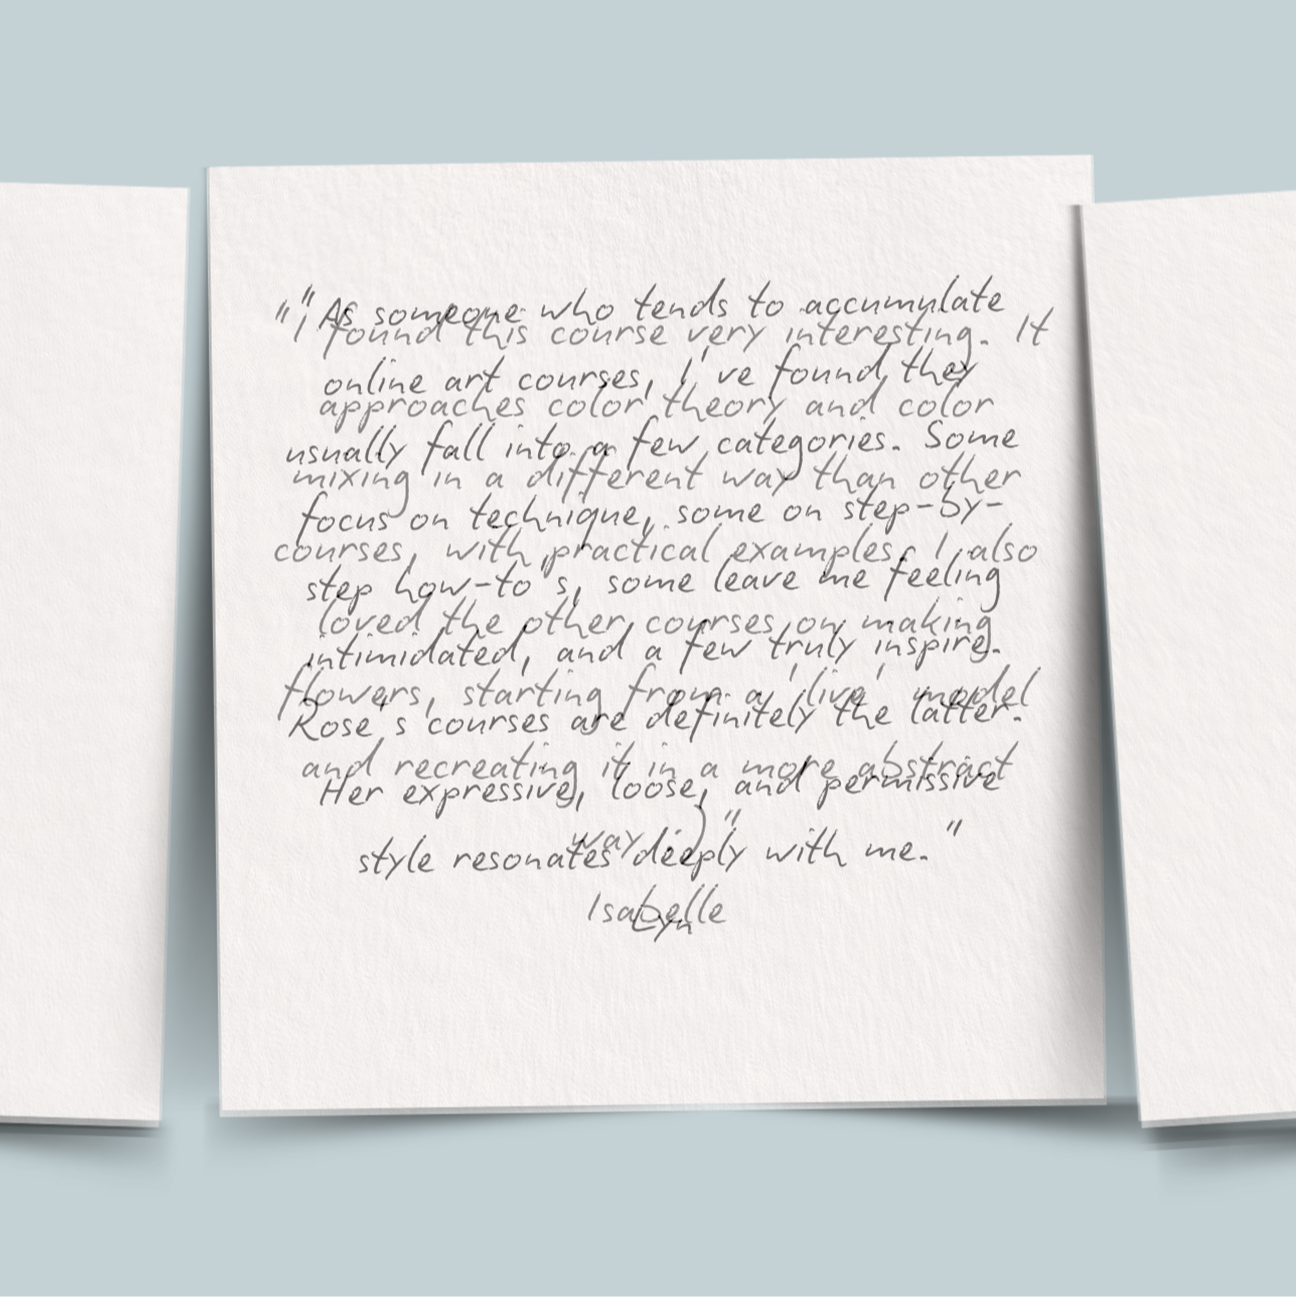 "As someone who tends to accumulate
online art courses, I've found they
usually fall into a few categories. Some
focus on technique, some on step-by-
step how-to's, some leave me feeling
intimidated, and a few truly inspire.
Rose's courses are definitely the latter.
Her expressive, loose, and permissive
style resonates deeply with me."
Lyn
"I found this course very interesting. It
approaches color theory and color
mixing in a different way than other
courses, with practical examples. I also
loved the other courses on making
flowers, starting from a 'live' model
and recreating it in a more abstract
way :)"
Isabelle